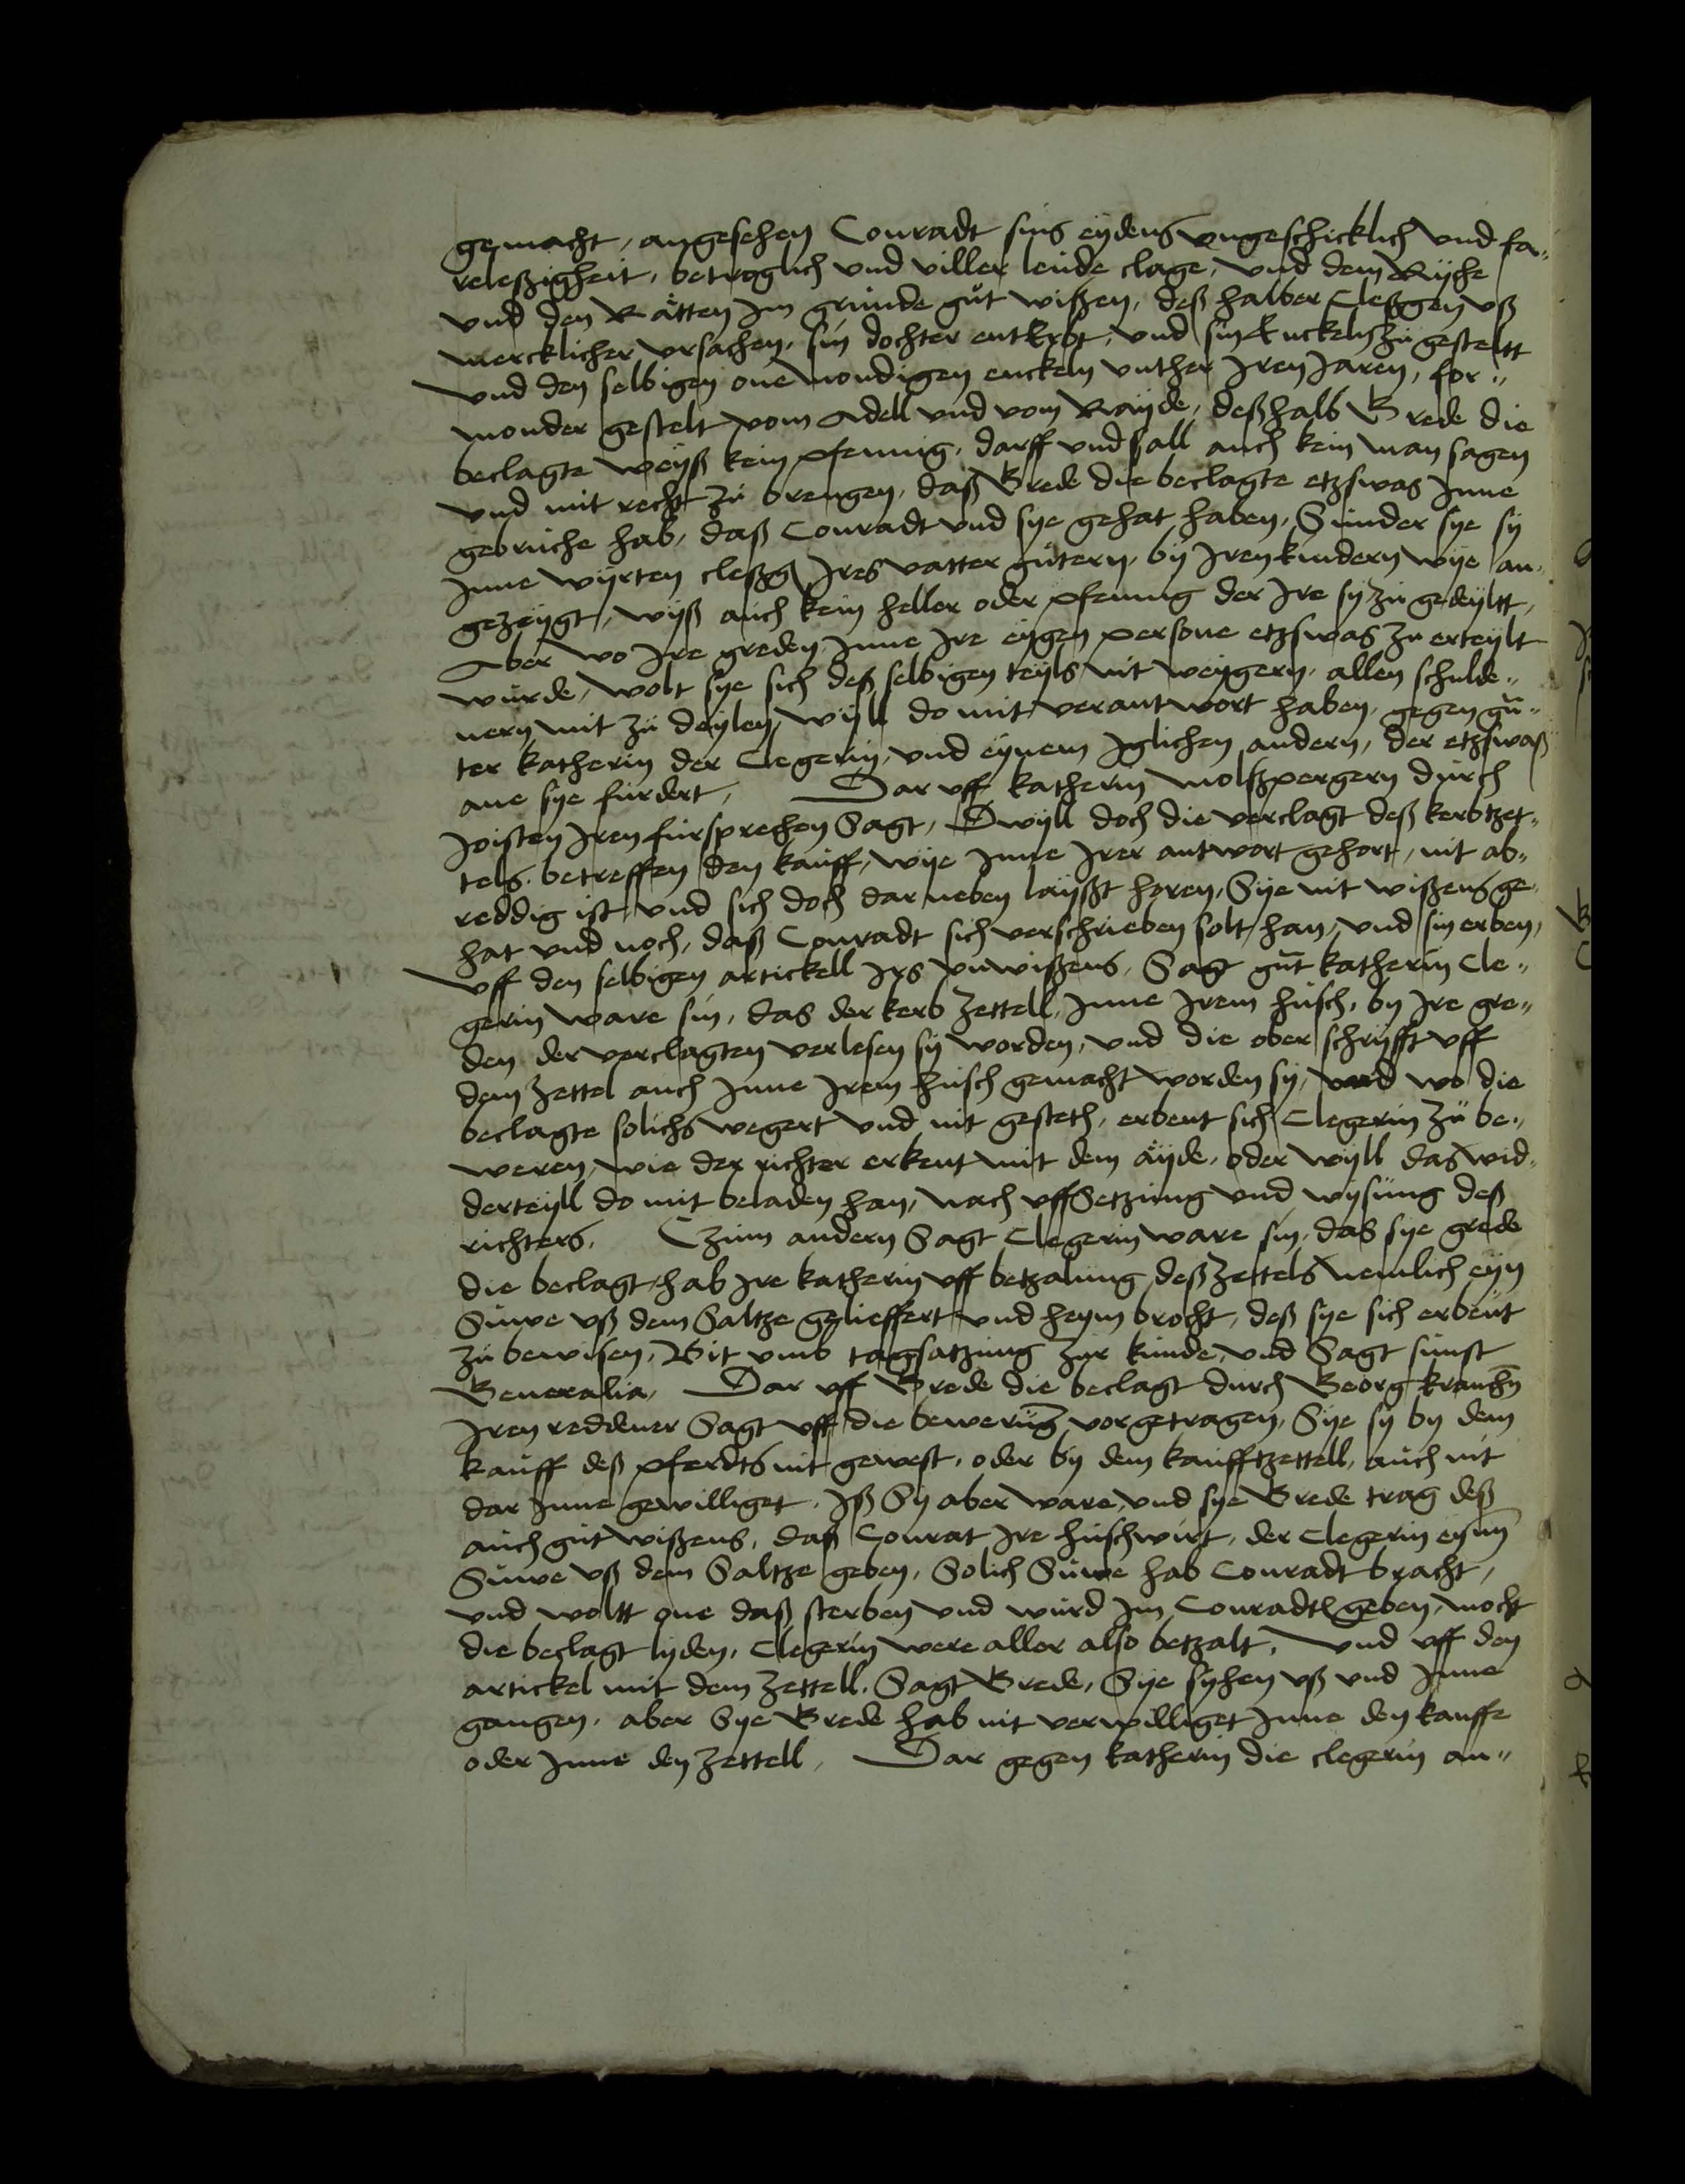 gemacht, angesehen Conradt sins eydens ungeschicklich und fa„
releßigheit, betroglich und viller leude clage, und dem Ryche
und den Rätten im grunde gut wißen, deß halber Cleßgen uß
mercklicher ursachen, sin dochter enterbt, und sin Enckeln zu gestelt
und den selbigen onemondigen enckeln unther Iren Jaren, for„
monder gestelt vom Adell und vom Rayde, deßhalb Grede die
beclagte weyß kein pfennig, darff und sall auch kein man sagen
und mit recht zu brengen, daß Grede die beclagte etzswas Inne
gebruche hab, daß Conradt und sye gehat haben, Sunder sye sy
Inne wyrten cleßg Ires vatter gutern, by Iren kindern wye an„
gezeygt, wyß auch kein heller oder pfennig der Ire sy zu gedeyltt,
Aber wo Ire greden Inne Ire eygen persone etzswas zu erteylt
wurde, wolt sye sich deß selbigen teyls nit weygern, allen schulde„
nern mit zu deylen, wyll do mit verantwort haben, gegen gu„
ter katherin der Clegerin, und eynem Iglichen andern, der etzswaß
ane sye furdert, Dar uff katherin molßpergern durch
Joisten Iren fursprechen Sagt, Dwyll doch die verclagt deß kerbtzet„
tels, betreffen den kauff, wye Inne Irer antwort gehort, nit ab„
reddig ist, und sich doch dar neben layßt horen, Sye nit wißens ge„
hat und noch, daß Conradt sich verschrieben solt han, und sin erben,
uff den selbigen artickell Irs unwißens, Sagt gut katherin Cle„
gerin ware sin, das der kerb zettell, Inne Irem husch, by Ire gre„
den der verclagten verlesen sy worden, und die ober schryfft uff
dem zettel auch Inne Irem husch gemacht worden sy, und wo die
beclagte solichs wegert und nit gesteth, erbeut sich Clegerin zu be„
weren, wie der richter erkent mit dem äyde, oder wyll das wid„
derteyll do mit beladen han, nach uffsetzung und wysung deß
richters, Czum andern Sagt Clegerin ware sin, das sye grede
die beclagt, hab Ire katherin uff betzalung deß zettels nemlich eyn
Suwe uß dem Saltze gelieffert und heym brocht, deß sye sich erbeut
zu bewisen, Bit umb tagsatzung zur kunde, und Sagt sunst
Generalia, Dar uff Grede die beclagt durch Georg kranchn
Iren reddener Sagt uff die bewerung vorgetragen, Sye sy by dem
kauff deß pferdts nit gewest, oder by dem kaufftzettell, auch nit
dar Inne gewilliget, Iß Sy aber ware, und sye Grede trag deß
auch gut wißens, daß Conrat Ire huschwirt, der Clegerin eynn
Suwe uß dem Saltze geben, Solich Suwe hab Conradt bracht,
und woltt one daß sterben und wurd Im Conradt geben, mocht
die beclagt lyden, Clegerin were aller also betzalt, und uff den
artickel mit dem zettell, Sagt Grede, Sye syhen uß und Inne
gangen, aber Sye Grede hab nit verwilliget Inne den kauffe
oder Inne den zettell, Dar gegen katherin die clegerin an„